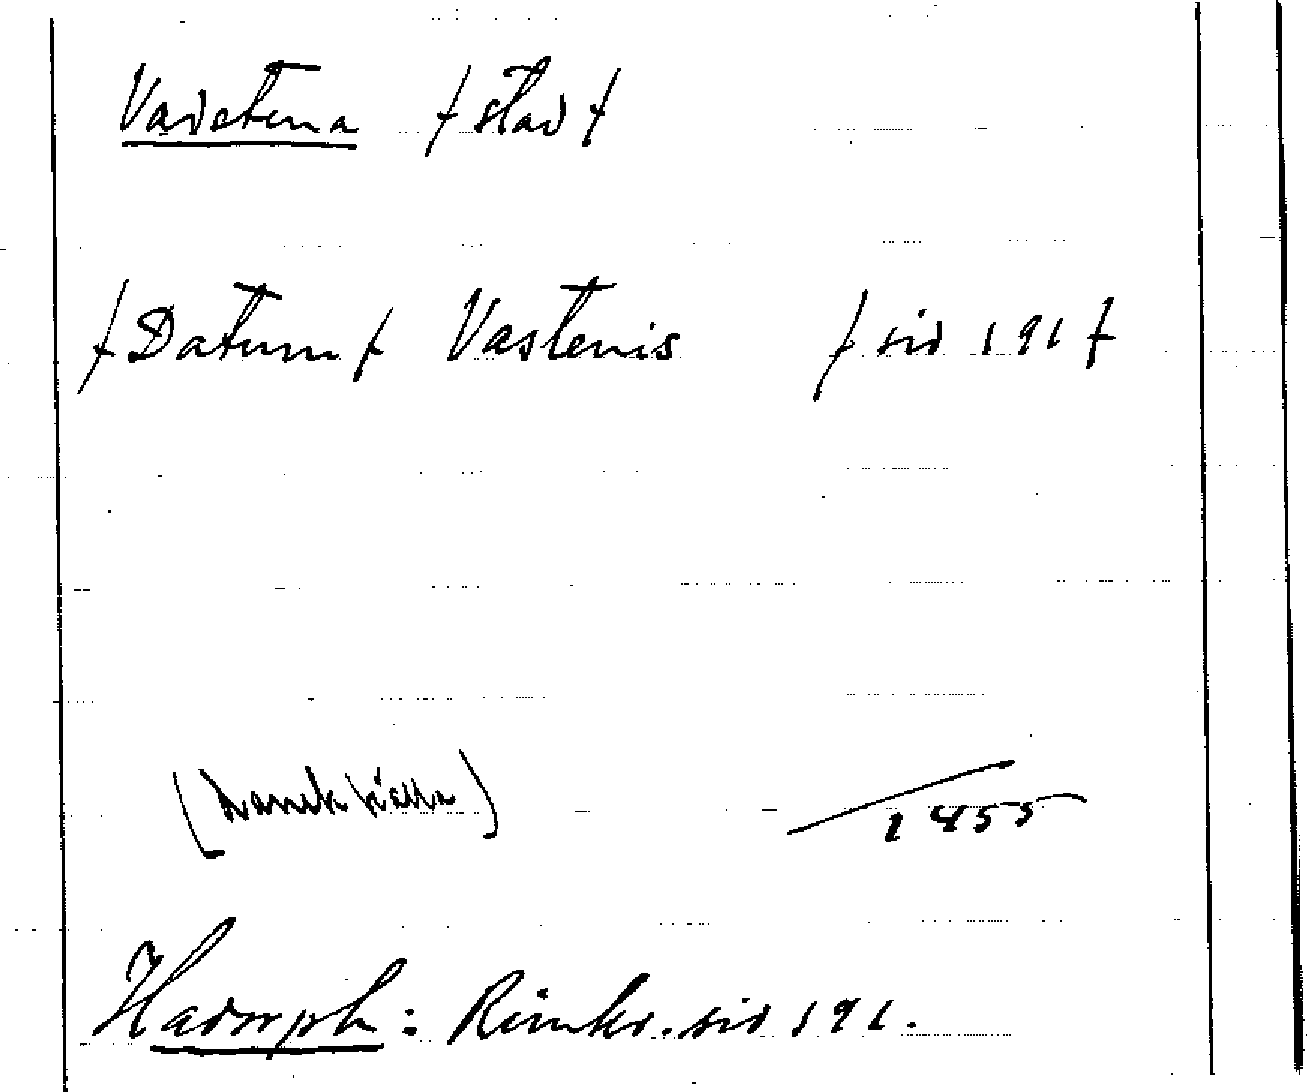 Vadstena /stad/
/Datum/ Vastenis /sid 191/
(Dansk källa)
1455
Hadorph: Rimkr. sid 191.